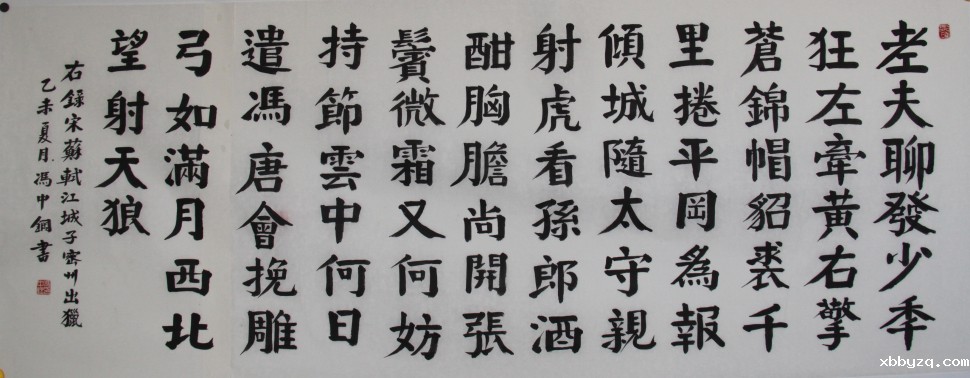 老夫聊發少年
狂左牽黃右擎
蒼錦帽貂裘千
里捲平岡為報
傾城隨太守親
射虎看孫郎酒
酣胸膽尚開張
鬢微霜又何妨
持節雲中何日
遣馮唐會挽雕
弓如滿月西北
望射天狼
右錄宋蘇軾江城子密州出獵
乙未夏月馮中鋼書
xbbyzq.com